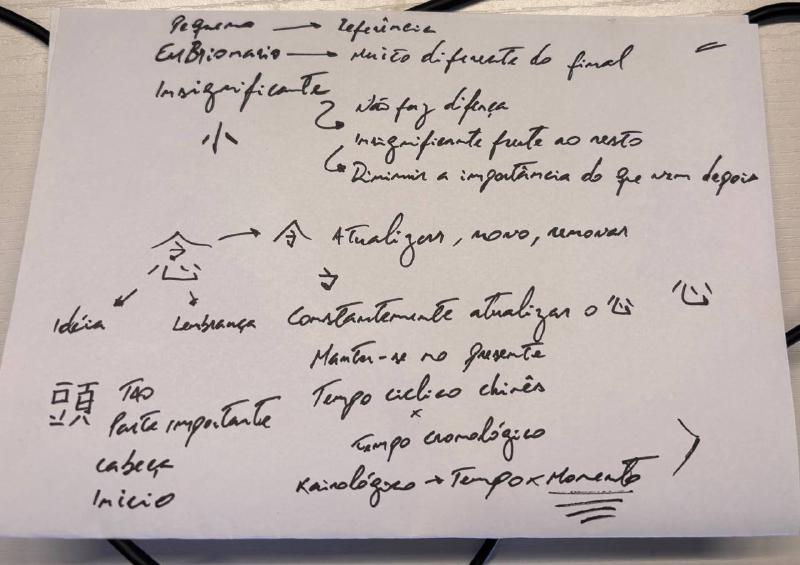 Pequeno → Referência
EmBrionario → Muito diferente do final
Insignificante
Não faz difença
小
Insignificante frente ao resto
Diminuir a importância do que vem depois
念 → 今 Atualizar, novo, renovar
Idéia
Lembrança
Constantemente atualizar o 心 心
Manter-se no presente
頭
TAO
Tempo ciclico chinês
Parte importante
x
Tempo cronológico
cabeça
Kairológico → Tempo x Momento
Inicio